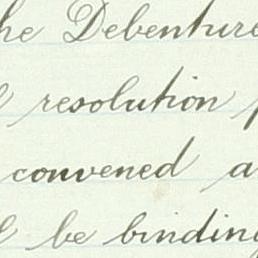 he Debenture
resolution
convened a
be binding